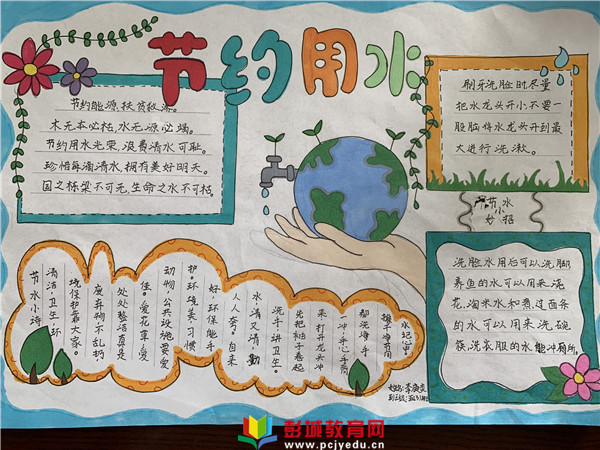 节约用水
节约能源,扶贫救源。
木无本必枯,水无源必竭。
节约用水光荣,浪费清水可耻。
珍惜每滴清水,拥有美好明天。
国之栋梁不可无,生命之水不可枯。
刷牙洗脸时尽量
把水龙头开小不要一
股脑将水龙头开到最
大进行洗漱。
节水
小
妙招
洗脸水用后可以洗脚
养鱼的水可以用来浇
花,淘米水和煮过面条
的水可以用来洗碗
筷,洗衣服的水能冲厕所。
都洗净手
一冲手心手背
来打开龙头冲
先把袖子卷起
洗手,讲卫生。
水,清又清,勤
人人夸。自来
好,环保能手
护。环境美,习惯
动物,公共设施要爱
住,爱花草,爱
处处整洁真是
废弃物,不乱扔
境保护靠大家。
清洁,卫生,环
节水小诗
彭城教育网
www.pcjyedu.cn